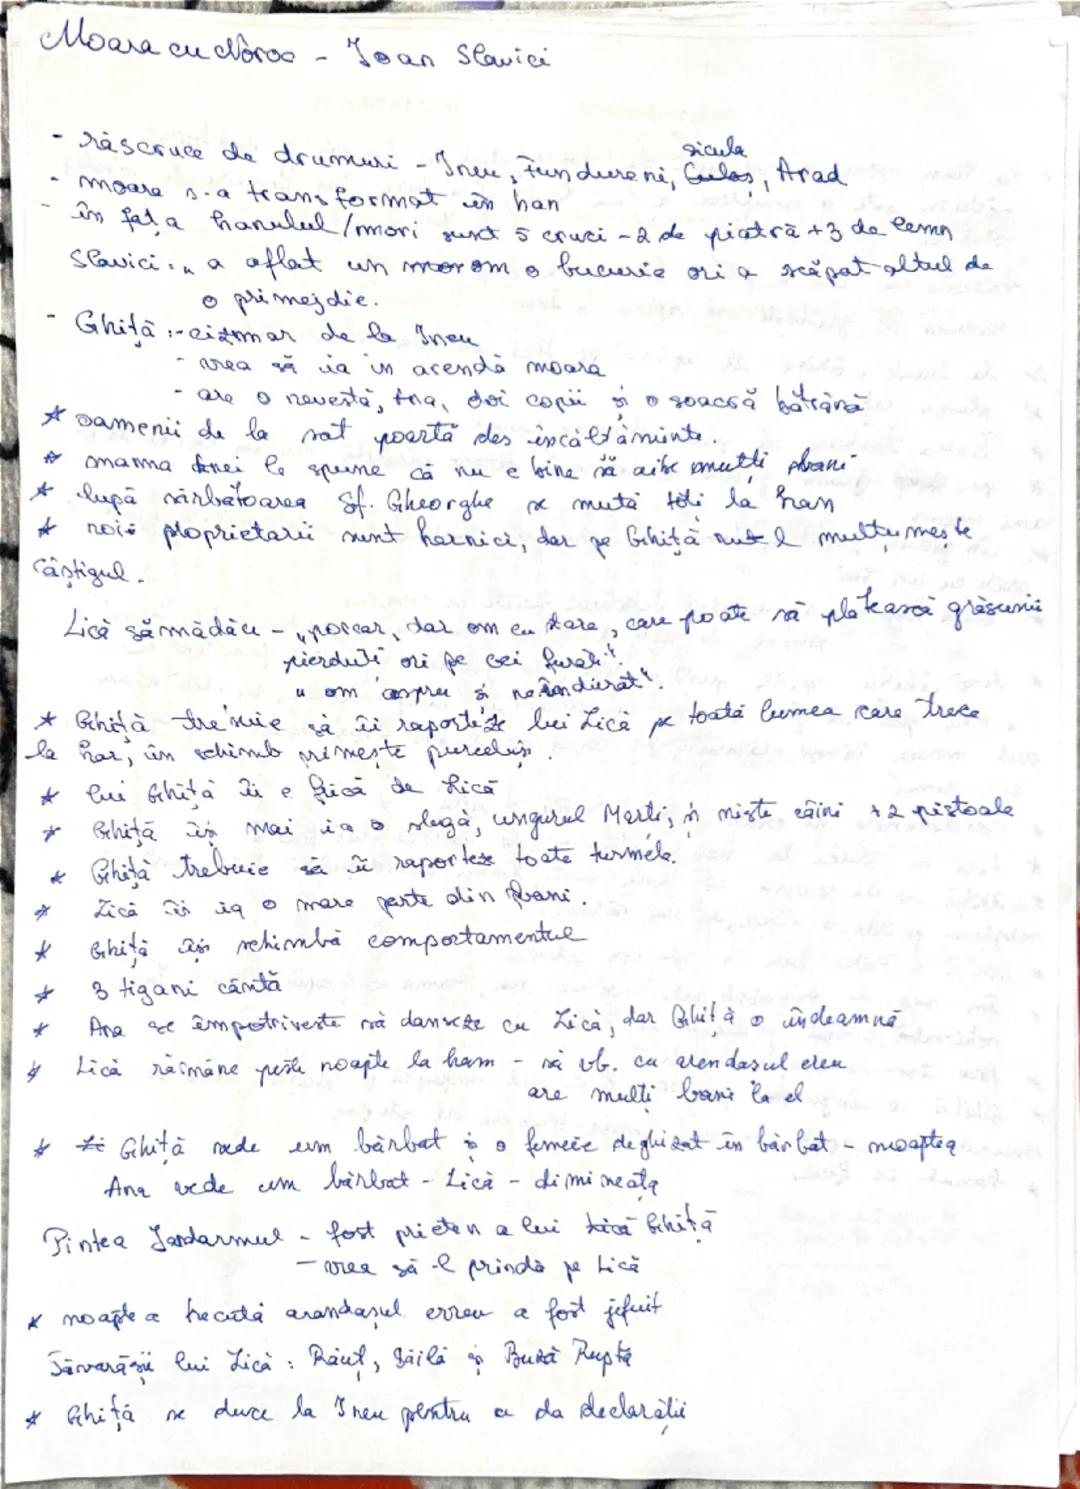 Moara cu Noroc - Ioan Slavici
- răscruce de drumuri - Ineu, Fundureni, sicula, Arad
- moara s-a transformat în han
- în fața hanului/mori sunt 5 cruci - 2 de piatră + 3 de lemn
Slavici: "a aflat un morom o bucurie ori a scăpat altul de
o primejdie.
- Ghiță: - cizmar de la Ineu
- vrea să ia in arendă moara
- are o nevestă, Ana, doi copii și o soacră bătrână
* oamenii de la sat poartă des încălțăminte.
* mama Anei le spune că nu e bine să aibe multi bani.
* după sărbătoarea Sf. Gheorghe se mută toti la han
* noii proprietarii sunt harnici, dar pe Ghiță nu l multumeste
câștigul.
Lică sămădău - "porcar, dar om cu stare, care poate să plătească grăsunii
pierduti ori pe cei furati".
"om aspru și neîndurat".
* Ghiță trebuie să îi raporteze lui Lică pe toată lumea care trece
la han, în schimb primește purceluși.
* lui Ghiță îi e frică de Lică
* Ghiță își mai ia o slugă, ungurul Marti, și niște câini +2 pistoale
* Ghiță trebuie să îi raporteze toate turmele.
* Lică îi ia o mare parte din bani.
* Ghiță își schimbă comportamentul
* 3 tigani cântă
* Ana se împotriveste să danseze cu Lică, dar Ghiță o îndeamnă
* Lică rămâne peste noapte la han - să vb. cu arendasul
are multi bani la el
* Ghiță vede um bărbat și o femeie deghizat în bărbat - noaptea
Ana vede um bărbat - Lică - dimineata
Pintea Jandarmul - fost prieten a lui Ghiță
- vrea să-l prindă pe Lică
* noaptea trecută arandașul evreu a fost jefuit
lui Lică: Răut, Săilă și Buză Ruptă
* Ghiță se duce la Ineu pentru a da declaratii